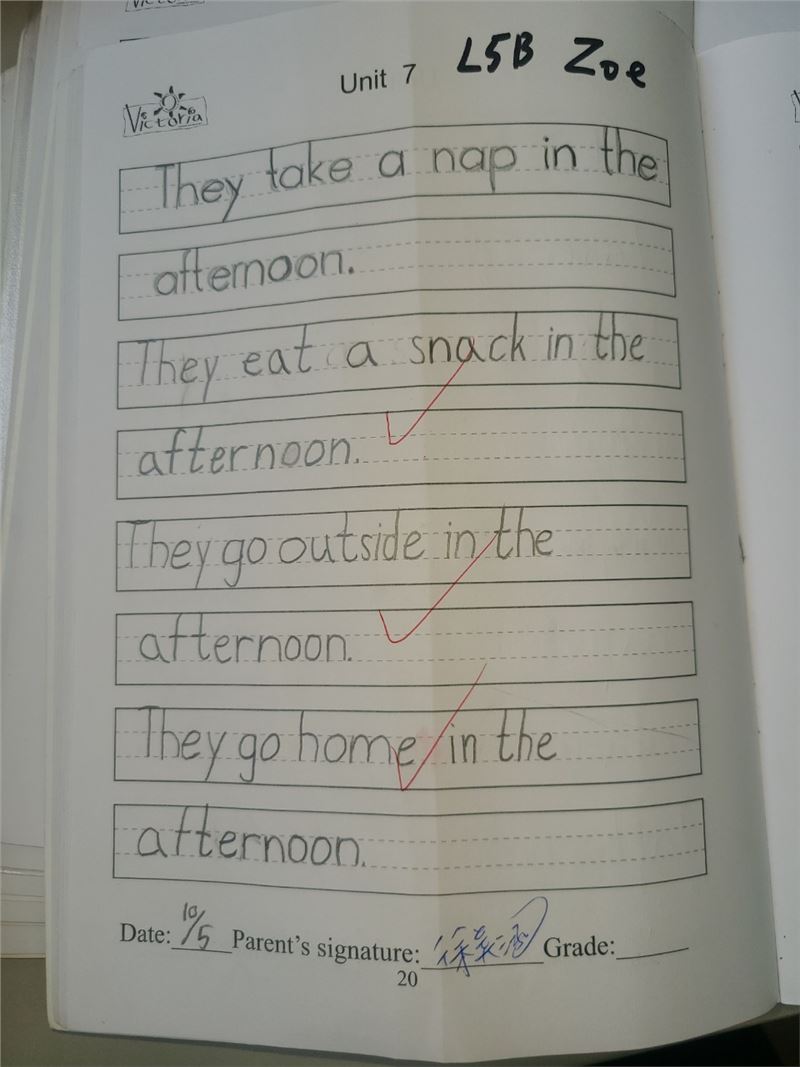 Unit 7 L5B Zoe
Victoria
They take a nap in the
afternoon.
They eat a snack in the
afternoon.
They go outside in the
afternoon.
They go home in the
afternoon.
Date: 10/5 Parent's signature: Grade:
20